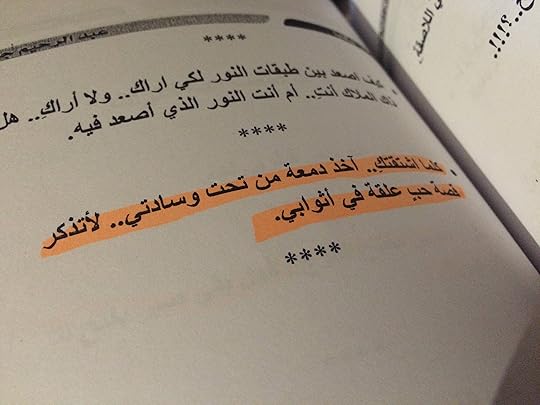 عبد الرحيم
****
• كيف اصعد بين طبقات النور لكي اراك.. ولا أراكِ.. هل
ذاك الملاك أنتِ.. أم أنت النور الذي أصعد فيه.
****
• كلما اشتقتكِ.. آخذ دمعة من تحت وسادتي.. لأتذكر
قصة حبٍ علقة في أثوابي.
****
ي اللاصقة
!!!!؟..